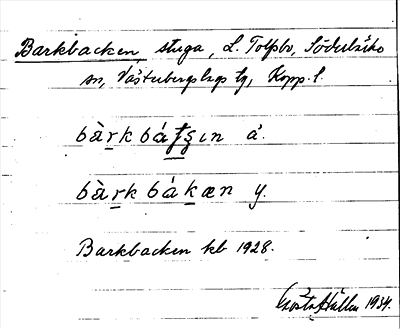 Barkbacken, stuga, L. Tolfsbo, Söderbärke
sn, Västerbergslags tg, Kopp. l.
bàrkbáʈʂın ä.
bàrkbákæn y.
Barkbacken kb 1928.
Gösta Hallén 1934.